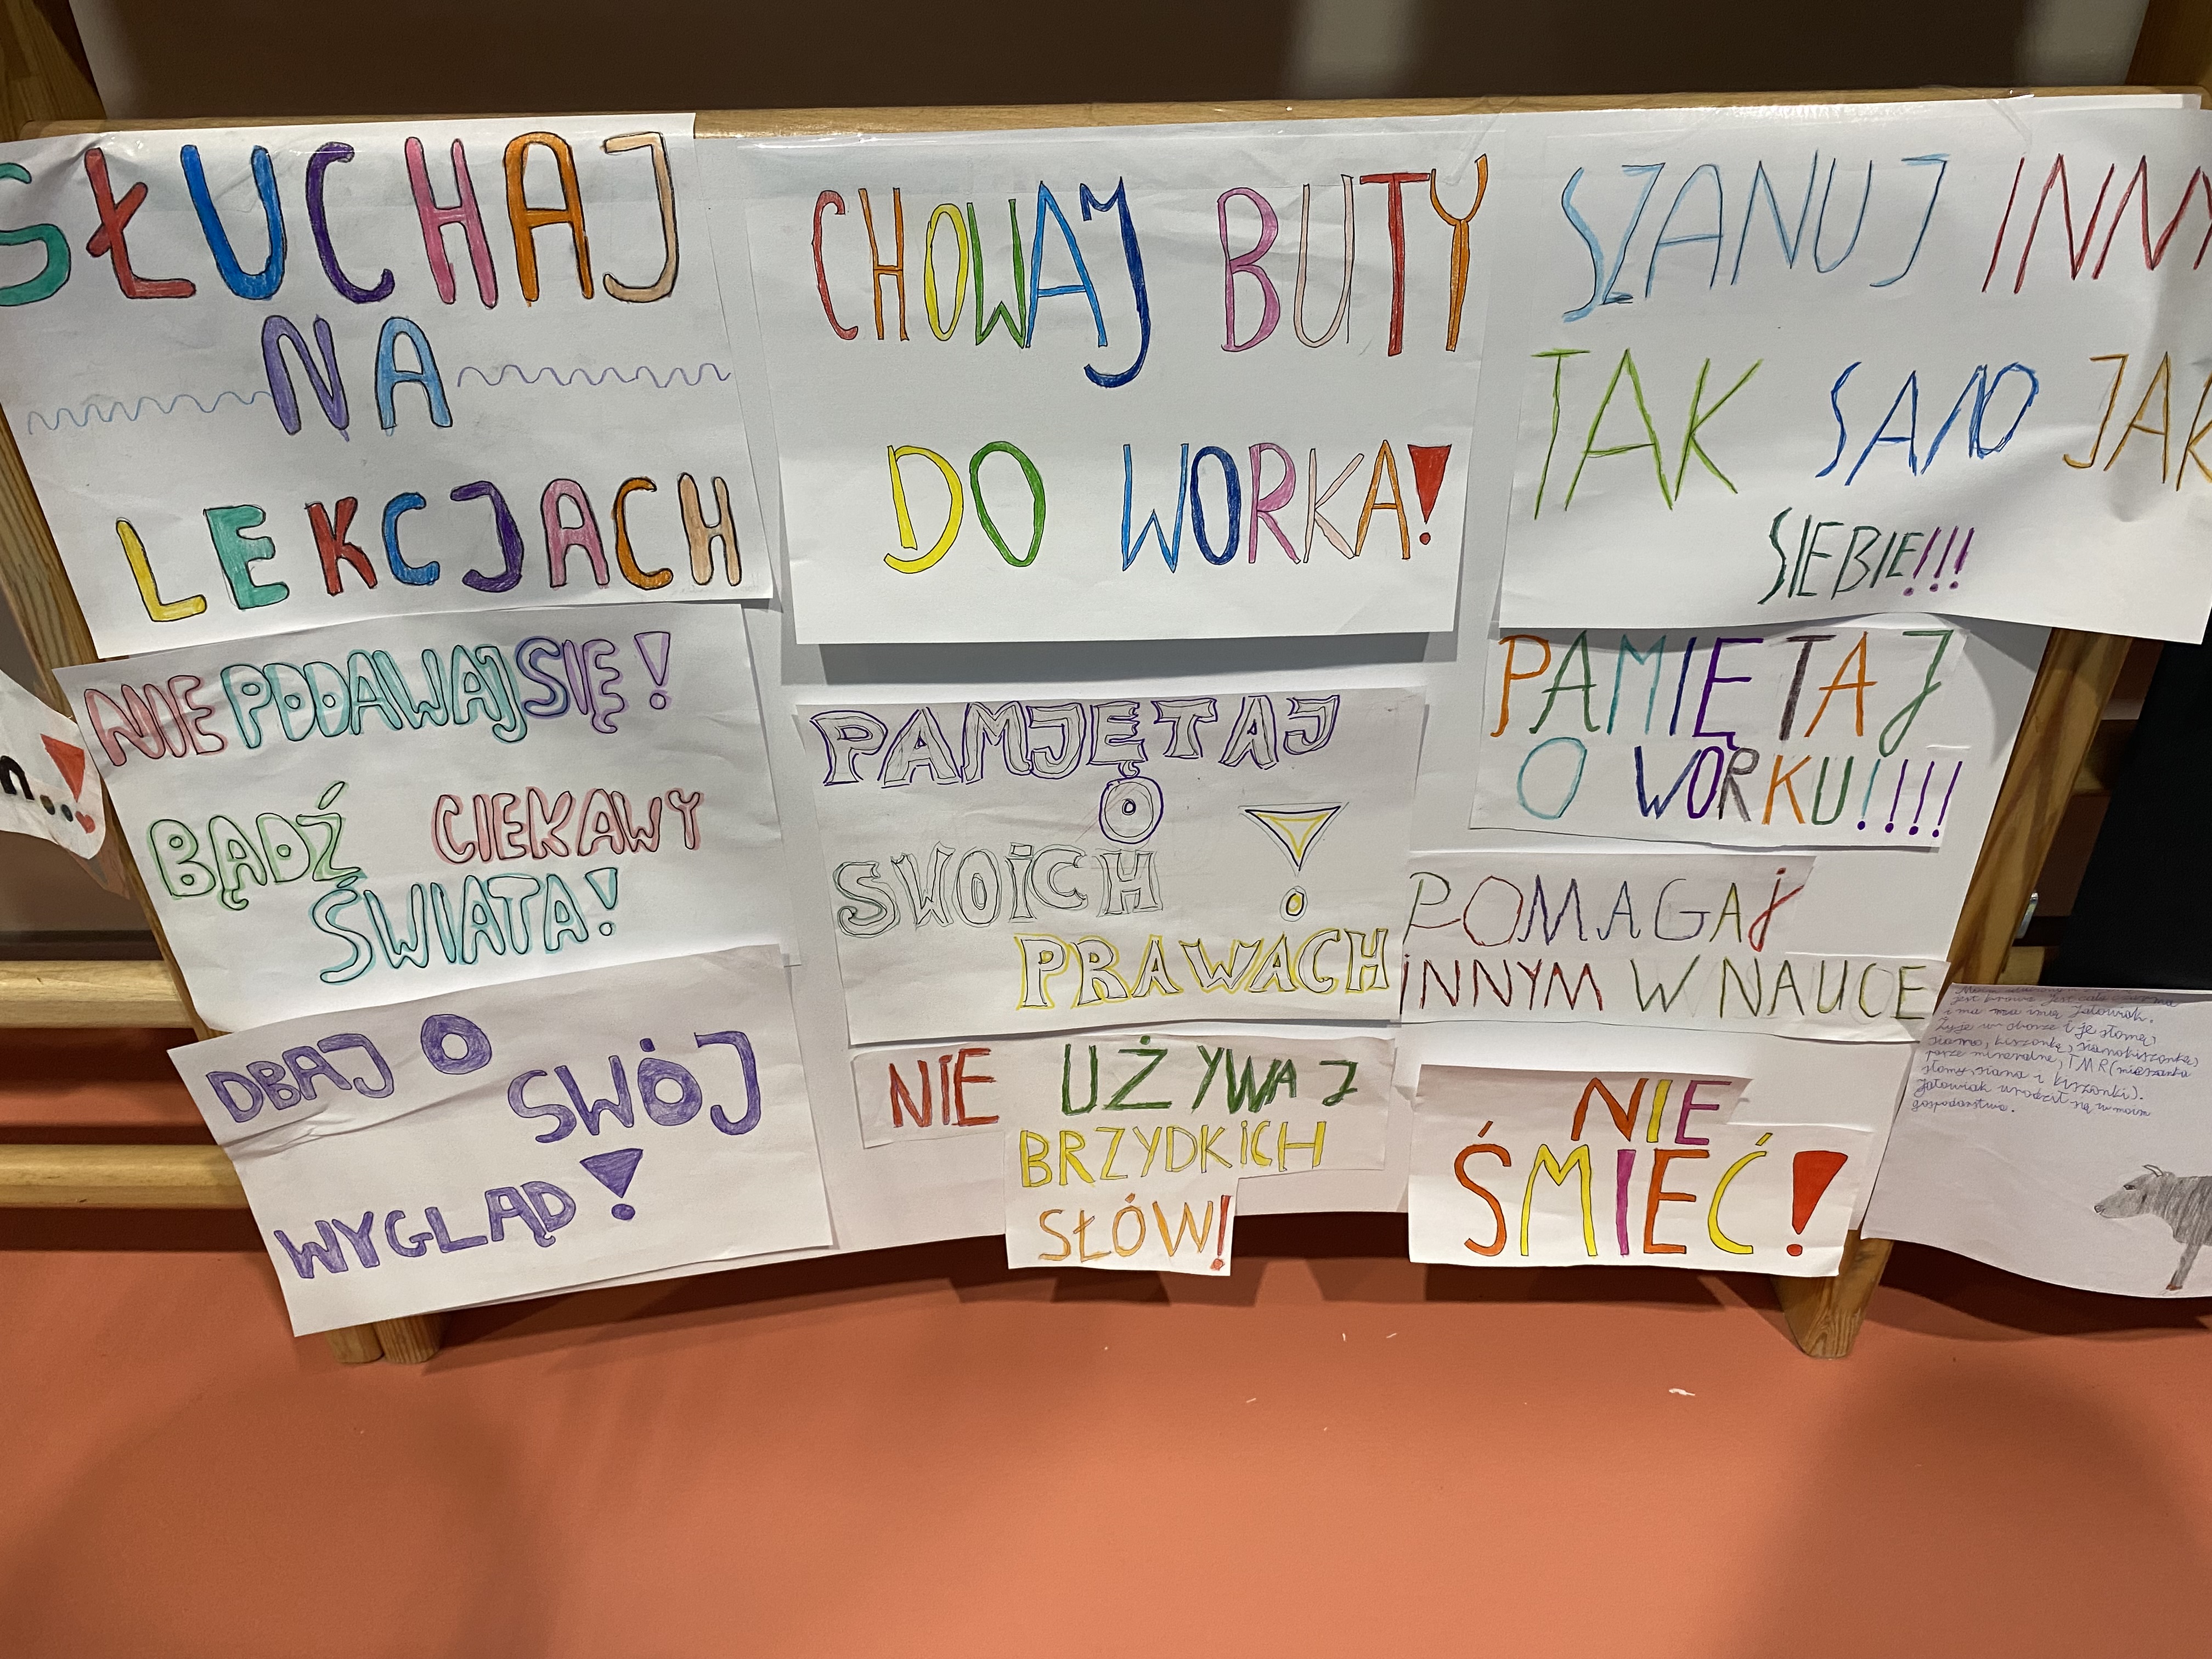 SŁUCHAJ
NA
LEKCJACH
CHOWAJ BUTY
DO WORKA!
SZANUJ INNY
TAK SAMO JAK
SIEBIE!!!
NIE PODDAWAJ SIĘ!
BĄDŹ CIEKAWY
ŚWIATA!
PAMJĘTAJ
O
SWOiCH !
PRAWACH
PAMIĘTAJ
O WORKU!!!!
POMAGAJ
iNNYM W NAUCE
DBAJ O SWÓJ
WYGLĄD!
NIE UŻYWAJ
BRZYDKiCH
SŁÓW!
NIE
ŚMIEĆ!
n...!
jest krowa. Jest
i ma na imię Jałowiak.
Żyje w oborze i je słomę,
siano, kiszonkę, sianokiszonkę,
pasze mineralne, TMR (mieszanka
słomy, siana i kiszonki).
Jałowiak urodził się w moim
gospodarstwie.